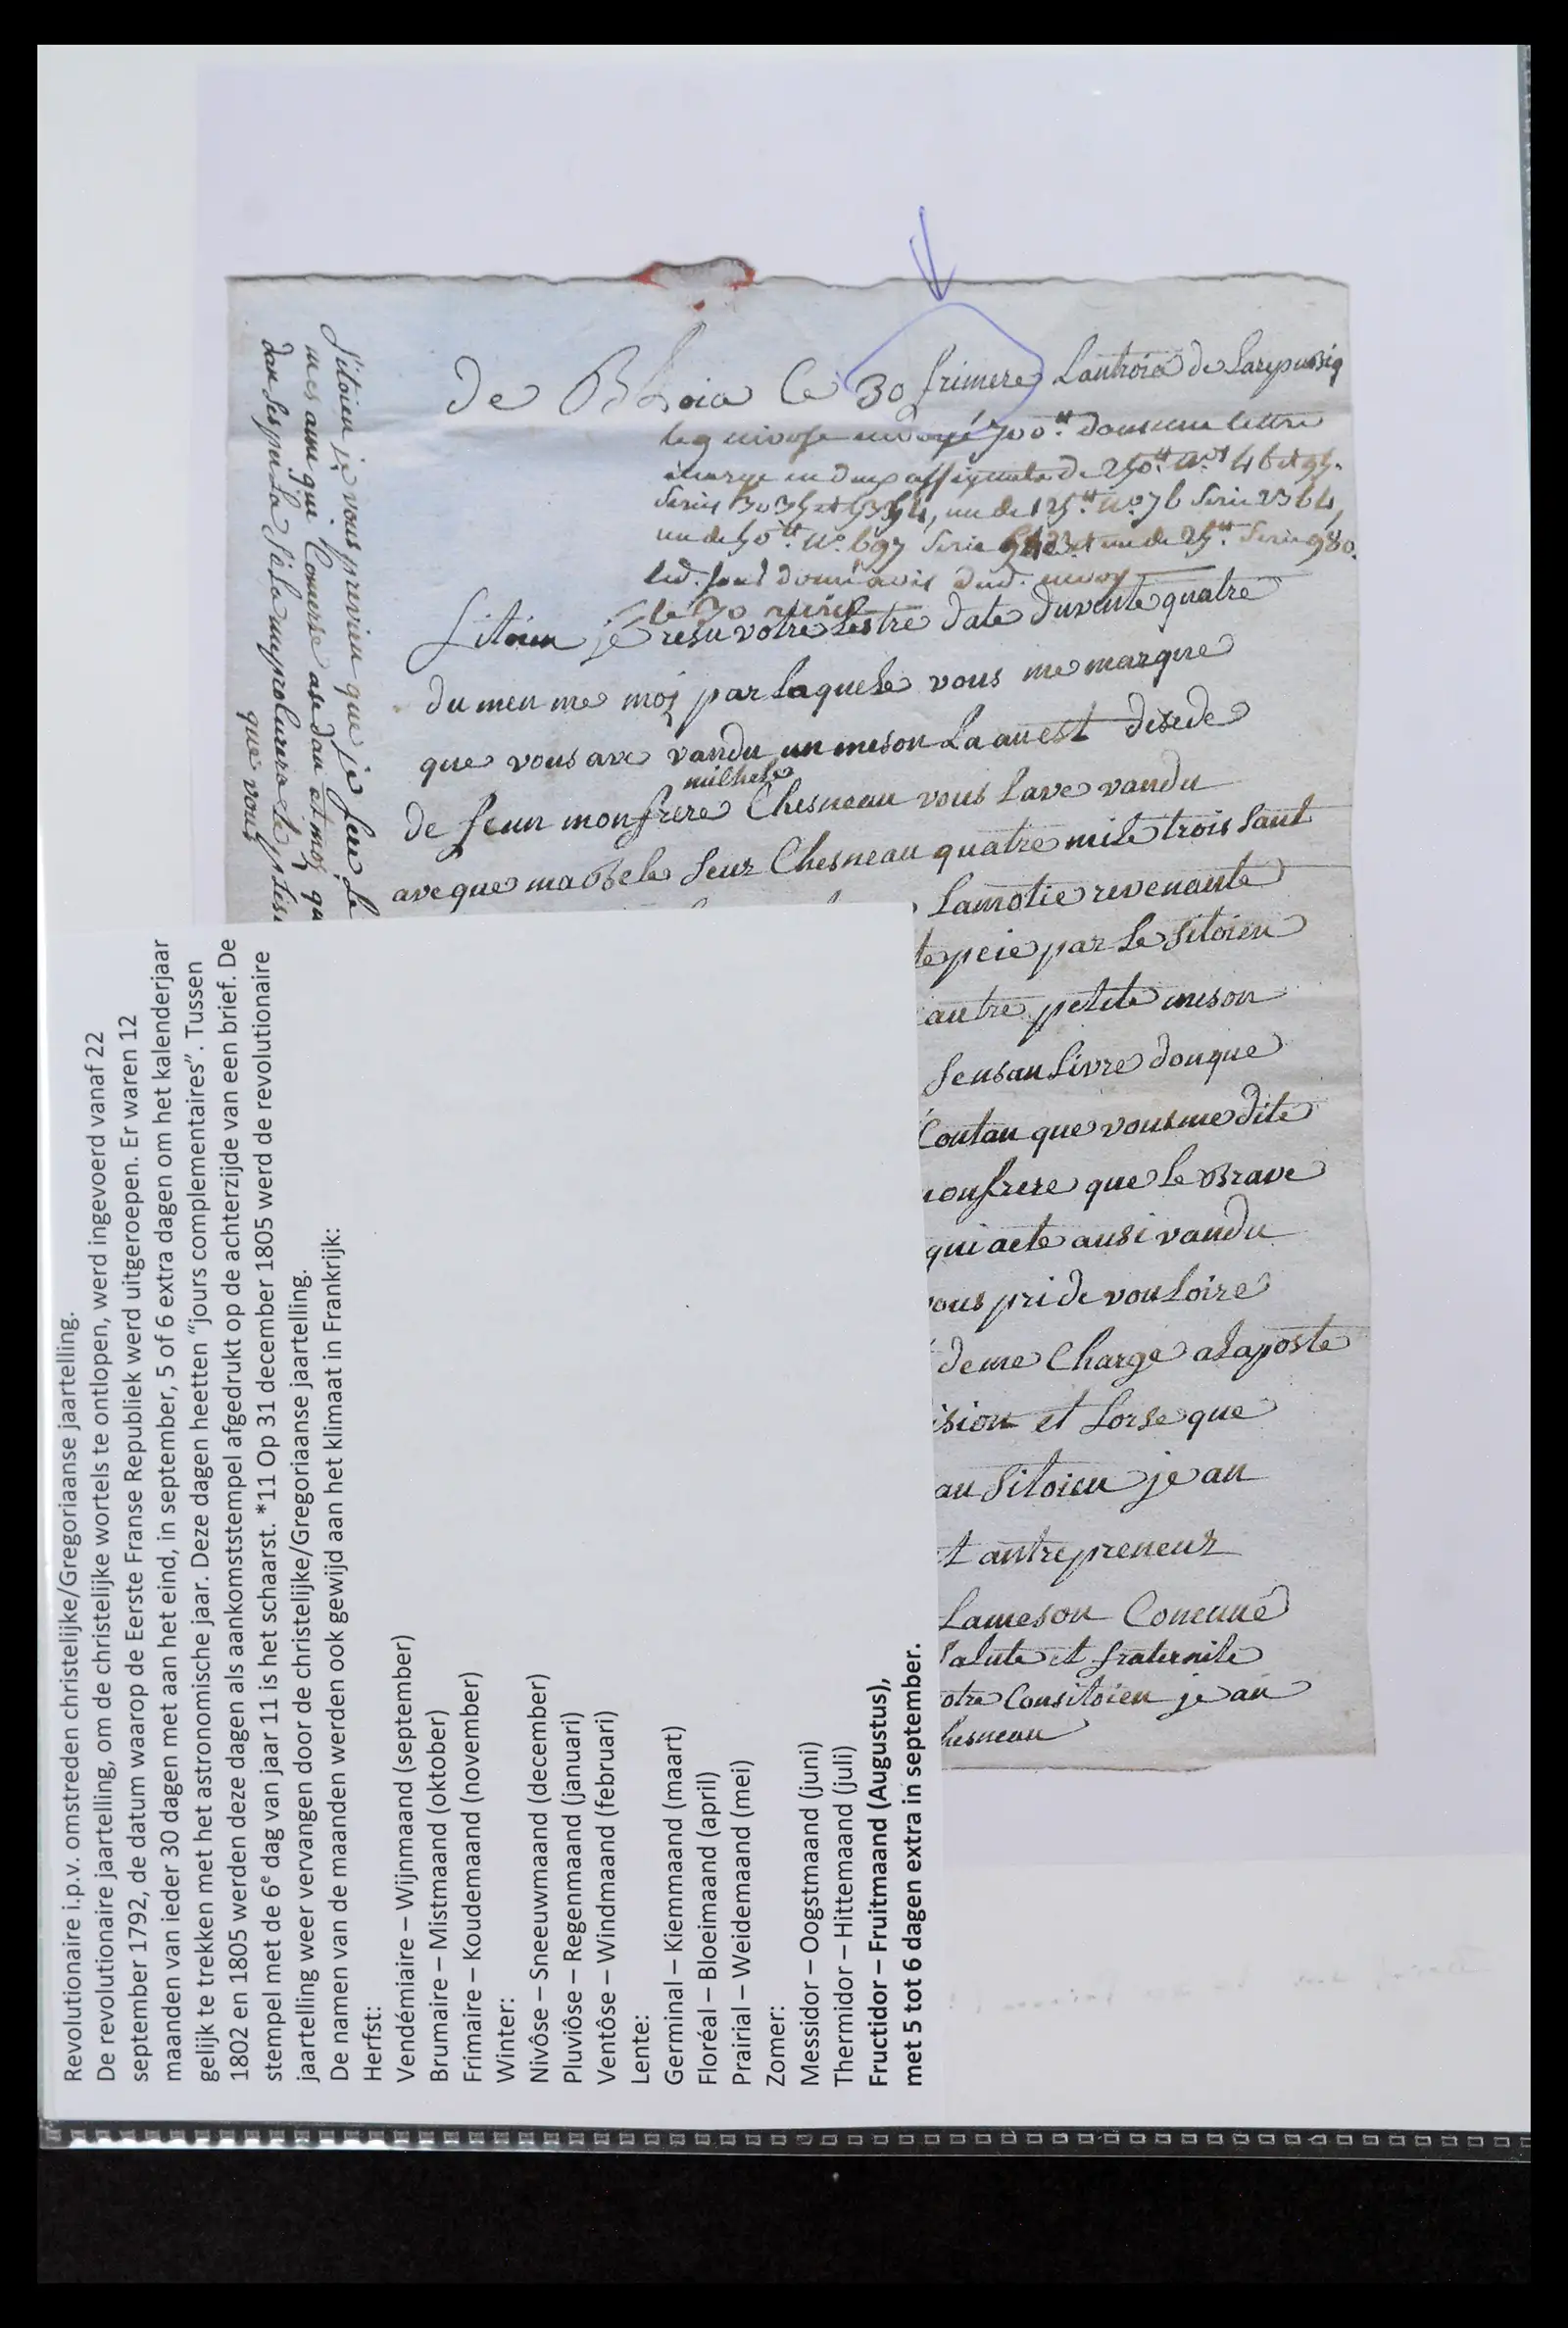 De Bloia Ce 30 frimere Lantroia de Larepu
le 9 nivose envoyé 700ᵗᵗ dans une lettre
chargé en deux assignats de 250ᵗᵗ
un de 125ᵗᵗ nº 76 Serie 2364,
un de 50ᵗᵗ Nº 697 Serie et un de 25ᵗᵗ Serie 980.
led. jour donné avis dud. envoy
Sitoien je resu votre Lestre date du vente quatre
du men me moi par laquele vous me marque
que vous ave vandu un meson La
de feun monfrere milhele Chesneau vous Lave vandu
aveque ma Bele Seur Chesneau quatre mile trois Sant
Lamotie revenante
peie par Le Sitoien
autre petite meson
Livre donque
Contan que vous me dite
monfrere que Le Brave
qui aete ausi vandu
vous pri de vouLoire
deme Charge aLaposte
ision et Lorse que
au Sitoien jean
t antrepreneur
Lameson Coneune
Salute et fraternite
otre Consitoien jean
hesneau
Sitoien je vous previen que je
mes ainsi que
que vous
Revolutionaire i.p.v. omstreden christelijke/Gregoriaanse jaartelling.
De revolutionaire jaartelling, om de christelijke wortels te ontlopen, werd ingevoerd vanaf 22
september 1792, de datum waarop de Eerste Franse Republiek werd uitgeroepen. Er waren 12
maanden van ieder 30 dagen met aan het eind, in september, 5 of 6 extra dagen om het kalenderjaar
gelijk te trekken met het astronomische jaar. Deze dagen heetten “jours complementaires”. Tussen
1802 en 1805 werden deze dagen als aankomststempel afgedrukt op de achterzijde van een brief. De
stempel met de 6ᵉ dag van jaar 11 is het schaarst. *11 Op 31 december 1805 werd de revolutionaire
jaartelling weer vervangen door de christelijke/Gregoriaanse jaartelling.
De namen van de maanden werden ook gewijd aan het klimaat in Frankrijk:
Herfst:
Vendémiaire – Wijnmaand (september)
Brumaire – Mistmaand (oktober)
Frimaire – Koudemaand (november)
Winter:
Nivôse – Sneeuwmaand (december)
Pluviôse – Regenmaand (januari)
Ventôse – Windmaand (februari)
Lente:
Germinal – Kiemmaand (maart)
Floréal – Bloeimaand (april)
Prairial – Weidemaand (mei)
Zomer:
Messidor – Oogstmaand (juni)
Thermidor – Hittemaand (juli)
Fructidor – Fruitmaand (Augustus),
met 5 tot 6 dagen extra in september.